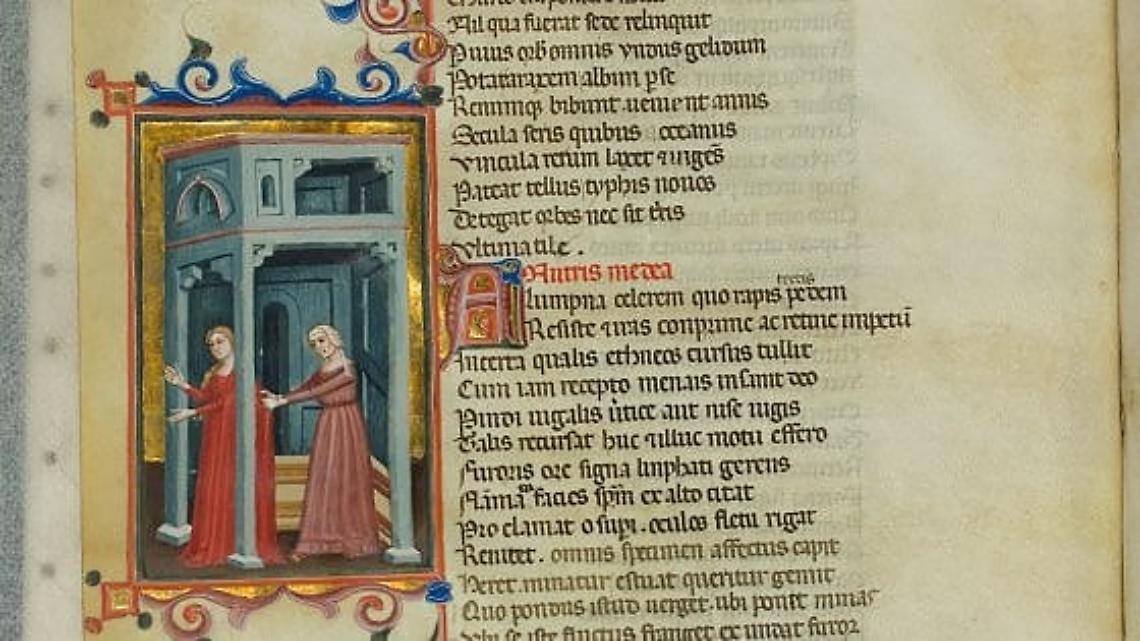 Nil qua fuerat sede relinquit
Puius orb omnis yndus gelidum
Potat araxem albim perse
Renumque bibunt uenient annis
Secula seris quibus occeanus
Vincula rerum laxet et inges
Pateat tellus typhis nouos
Detegat orbes nec sit tris
Vltima tile .
Nutris medea
tectis
Alumpna celerem quo rapis pedem
Resiste et iras conprime ac retine impetum
Incerta qualis ethneos cursus tullit
Cum iam recepto menais insanit deo
Pindi iugalis uertice aut nise iugis
Talis recursat huc et illuc motu effero
Furoris ore signa limphati gerens
Flama facies spm ex alto citat
Pro clamat o supi . oculos fletu rigat
Renitet . omnis specimen affectus capit
Heret minatur estuat queritur gemit
Quo pondus istud uerget . ubi ponet minas
Vbi se iste fluctus franget ex undat furor